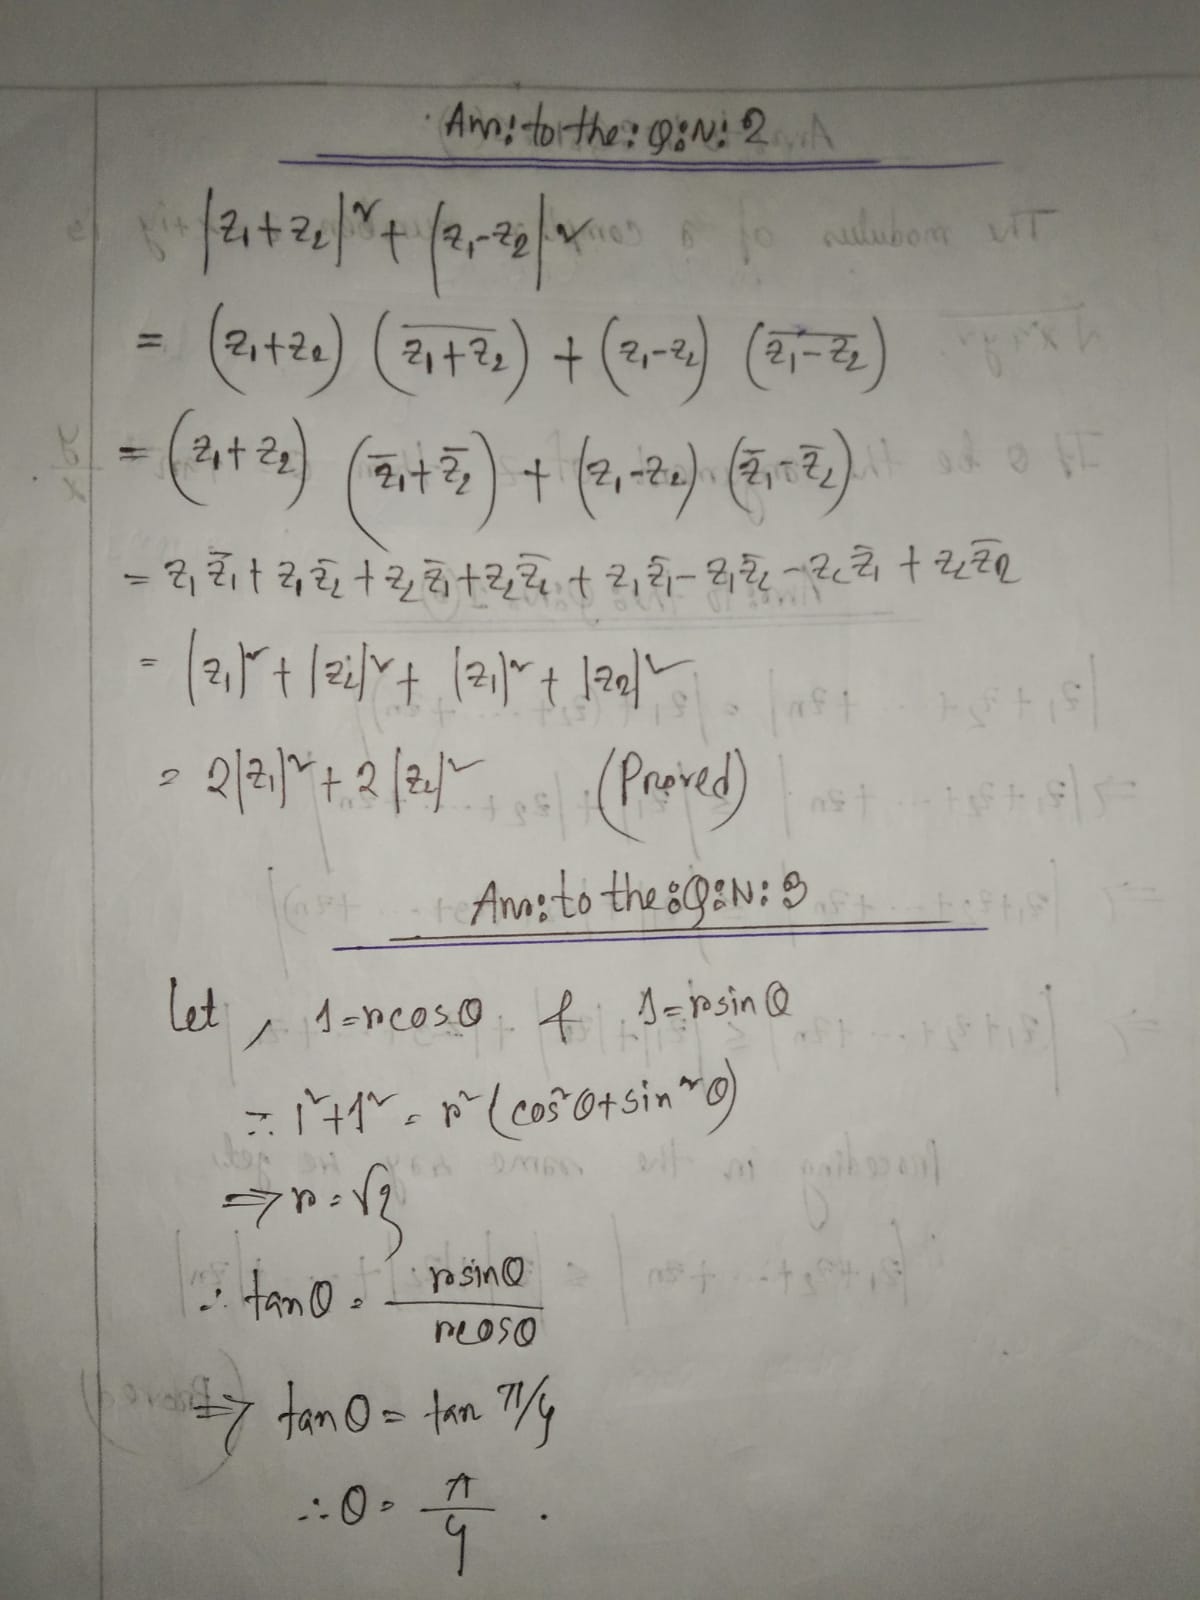 Ans: to the: Q:N: 2
|z₁+z₂|² + |z₁-z₂|²
= (z₁+z₂) (z̅₁̅+̅z̅₂̅) + (z₁-z₂) (z̅₁̅-̅z̅₂̅)
= (z₁+z₂) (z̄₁+z̄₂) + (z₁-z₂) (z̄₁-z̄₂)
= z₁z̄₁ + z₁z̄₂ + z₂z̄₁ + z₂z̄₂ + z₁z̄₁ - z₁z̄₂ - z₂z̄₁ + z₂z̄₂
= |z₁|² + |z₂|² + |z₁|² + |z₂|²
= 2|z₁|² + 2|z₂|² (Proved)
Ans: to the: Q:N: 3
let, 1=rcosθ & 1=rsinθ
∴ 1²+1² = r²(cos²θ+sin²θ)
⇒ r = √2
∴ tanθ = rsinθ/rcosθ
⇒ tanθ = tan π/4
∴ θ = π/4.